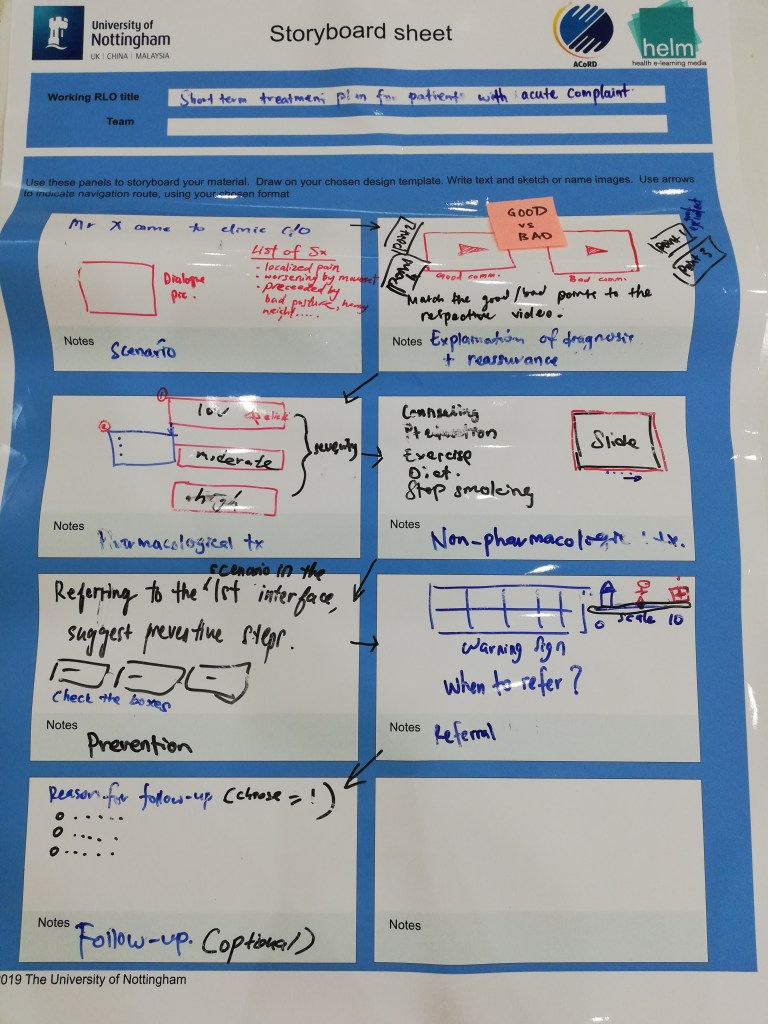 University of
Nottingham
UK | CHINA | MALAYSIA
Storyboard sheet
ACoRD
helm
health e-learning media
Working RLO title
Short term treatment plan for patients with acute complaint.
Team
Use these panels to storyboard your material. Draw on your chosen design template. Write text and sketch or name images. Use arrows
to indicate navigation route, using your chosen format
Mr X came to clinic c/o
Dialogue
pic.
List of Sx
- localized pain
- worsening by movement
- preceeded by
bad posture, heavy
weight.....
Notes
Scenario
GOOD
vs
BAD
Point 2
Point 1
Point 3
Good comm.
Bad comm.
Match the good/bad points to the
respective video.
Notes
Explanation of diagnosis
+ reassurance
1
low
click
2
moderate
high
severity
Notes
Pharmacological tx
Counselling
Exercise
Diet.
Stop smoking
Slide
Notes
Non-pharmacologic tx.
scenario in the
Referring to the 1st interface,
suggest preventive steps.
Check the boxes
Notes
Prevention
0 scale 10
Warning sign
When to refer?
Notes
Referral
Reason for follow-up (choose = !)
Notes
Follow-up. (optional)
Notes
2019 The University of Nottingham